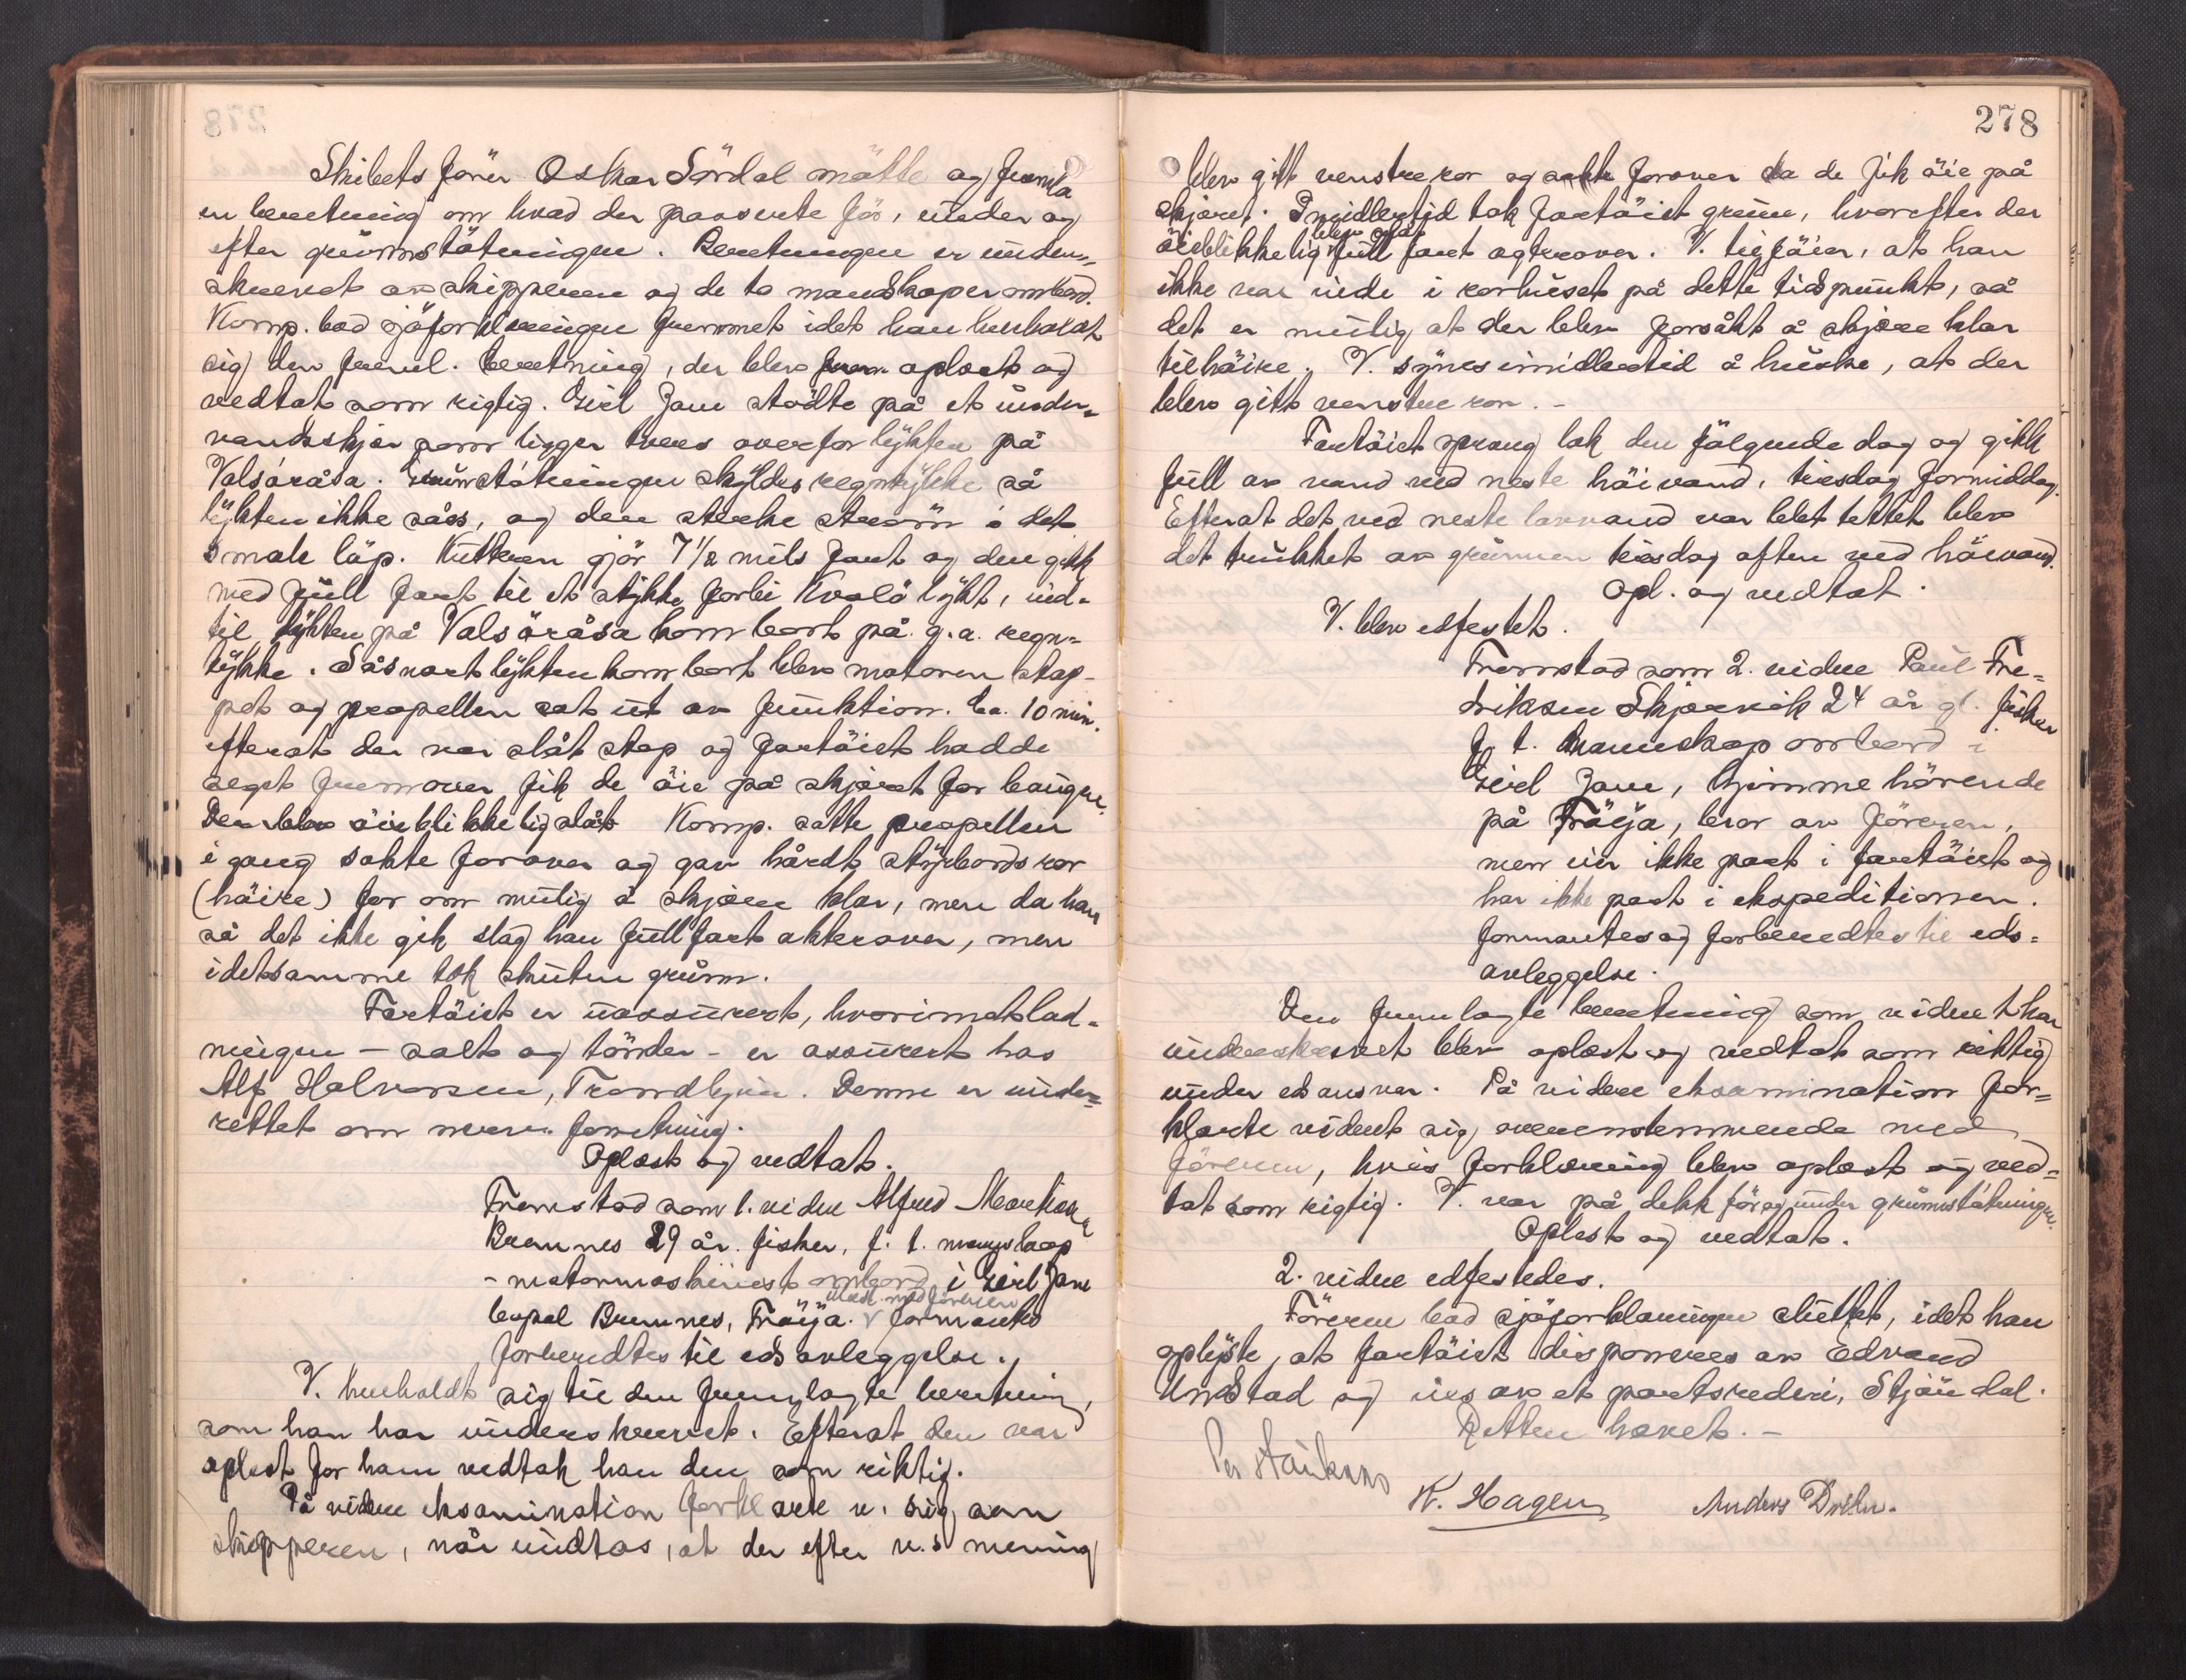 Skibets förer Oskar Sördal mötte og fremla
en beretning om hvad der passerte för, under og
efter grunnstötningen. Beretningen er under-
skrevet av skipperen og de to mandskaper ombord.
Komp. bad sjöforklaringen fremmet idet han henholdt
sig den freml. beretning, der blev oplæst og
vedtat som rigtig. Eivd Jane stödte på et under-
vandsskjær som ligger tvers overfor lykten på
Valsöråsa. Grunnstötningen skyldes regntykke så
lykten ikke såes, og den sterke ström i det
smale löp. Kutteren gjör 7 1/2 mils fart og den gikk
med full fart til et stykke forbi Kvalö lykt, ind-
til lykten på Valsöråsa kom bort på g.a. regn-
tykke. Såsnart lykten kom bort blev motoren stop-
pet og propellen sat ut av funktion. Ca. 10 min.
efterat der var slåt stop og fartöiet hadde
seget fremover fik de öie på skjæret for baugen.
Der blev öieblikkelig slåt Komp. satte propellen
i gang sakte forover og gav hårdt styrbords ror
(höire) for om mulig å skjære klar, men da han
så det ikke gik slog han full fart akterover, men
idetsamme tok skuten grunn.
Fartöiet er uassurert, hvorimot lad-
ningen - salt og tönder - er assurert hos
Alf Halvorsen, Trondhjem. Denne er under-
rettet om forretning.
Oplæst og vedtat.
Fremstod som 1. vidne Alfred
Bremnes 29 år. fisker, f. t. mannskap
- motormaskinist ombord i Jane
bopæl Bremnes, Fröya. V formantes
ubesl. med föreren
forberedtes til edsavleggelse.
V. henholdt sig til den fremlagte beretning,
som han har underskrevet. Efterat den var
oplest for ham vedtok han den som riktig.
På videre eksamination forklarte v. sig som
skipperen, når undtas, at der efter v.s mening
278
blev gitt venstre ror og sakte forover da de fik öie på
skjæret. Imidlertid tok fartöiet grunn, hvorefter der
blev slåt
öieblikkelig full fart agterover. V. tilföier, at han
ikke var inde i rorhuset på dette tidspunkt, så
det er mulig at der blev forsökt å skjære klar
til höire. V. synes imidlertid å huske, at der
blev gitt venstre ror. -
Fartöiet sprang læk den fölgende dag og gikk
full av vand ved neste höivand, tirsdag formiddag.
Efterat det ved neste lavvand var blit tettet blev
det trukket av grunnen tirsdag aften ved höivand.
Opl. og vedtat.
V. blev edfestet.
Fremstod som 2. vidne Paul Fre-
driksen Skjærvik 24 år gl. fisker
f. t. mannskap ombord i
Jane, hjemmehörende
på Fröya, bror av föreren,
men eier ikke part i fartöiet og
har ikke part i ekspeditionen.
formantes og forberedtes til eds-
avleggelse.
Den fremlagte beretning som vidnet har
underskrevet blev oplæst og vedtat som riktig
under edsansvar. På videre eksamination for-
klarte vidnet sig overensstemmende med
föreren, hvis forklaring blev oplæst og ved-
tat som rigtig. V. var på dekk för og under grunnstötningen.
Oplest og vedtat.
2. vidne edfestedes.
Föreren bad sjöforklaringen sluttet, idet han
oplyste, at fartöiet disponeres av Edvard
Unstad og eies av et partsrederi, Stjördal.
Retten hævet. -
K. Hagen